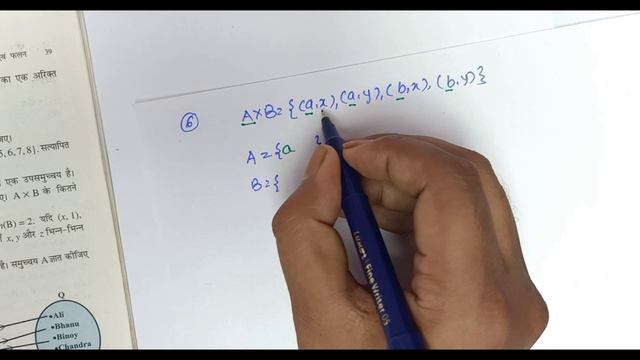 एवं फलन 39
का एक अरिक्त
5,6,7,8}. सत्यापित
एक उपसमुच्चय है।
A × B के कितने
n(B) = 2. यदि (x, 1),
x, y और z भिन्न-भिन्न
है। समुच्चय A ज्ञात कीजिए
Q
•Ali
•Bhanu
•Binoy
•Chandra
⑥ A×B={(a,x),(a,y),(b,x),(b,y)}
A={a
B={
Luxor Fine Writer 05